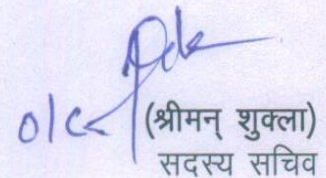 o/c
(श्रीमन् शुक्ला)
सदस्य सचिव